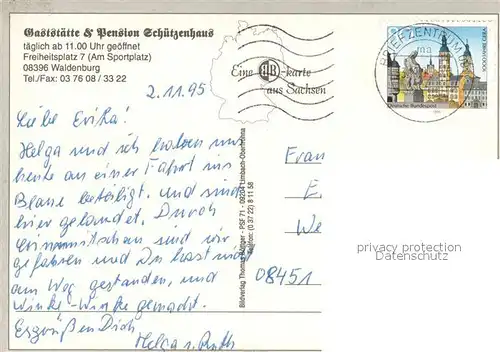 Gaststätte & Pension Schützenhaus
täglich ab 11.00 Uhr geöffnet
Freiheitsplatz 7 (Am Sportplatz)
08396 Waldenburg
Tel./Fax: 03 76 08 / 33 22
2.11.95
Eine BB-karte
aus Sachsen
BRIEFZENTRUM
1000 JAHRE GERA
Deutsche Bundespost
Liebe Erika!
Helga und ich haben uns
heute an einer Fahrt ins
Blaue beteiligt. und sind
hier gelandet. Durch
sind wir
gefahren und Du hast
am Weg gestanden, und
Winke-Winke gemacht.
Es grüßen Dich
Helga u. Ruth
Bildverlag Thomas Böttger - PSF 71 - 09204 Limbach-Oberfrohna
Telefon: (0 37 22) 8 11 58
Frau
E.
We
08451
Privacy protection
Datenschutz